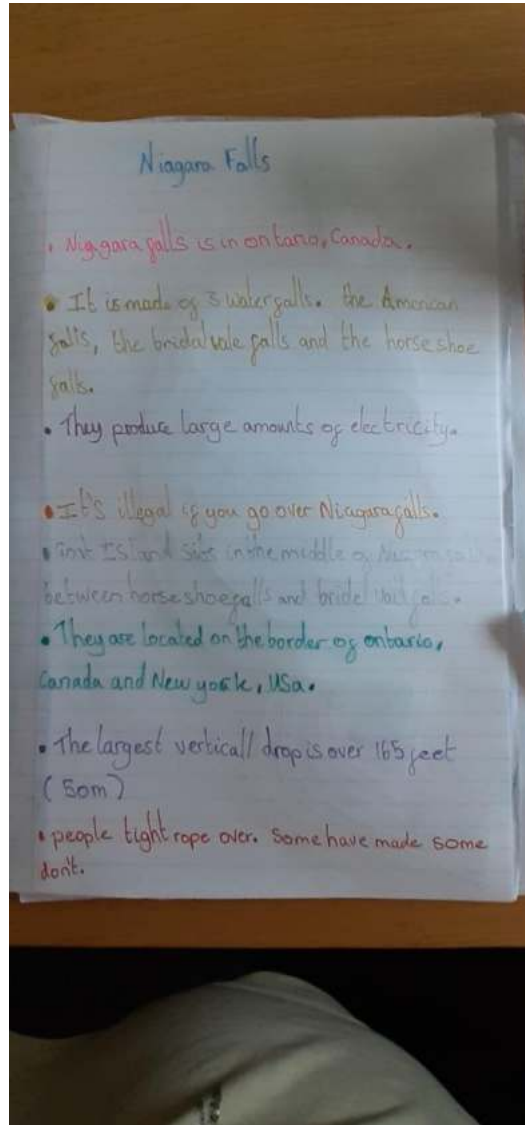 Niagara Falls
• Niagara falls is in ontario, Canada.
• It is made of 3 waterfalls. the American
falls, the bridal vale falls and the horse shoe
falls.
• They produce large amounts of electricity.
• It's illegal if you go over Niagara falls.
• Island sits in the middle of
between horse shoe falls and bridel
• They are located on the border of ontario,
Canada and New york, USa.
• The largest verticall drop is over 165 feet
(50m)
• people tight rope over. Some have made some
don't.